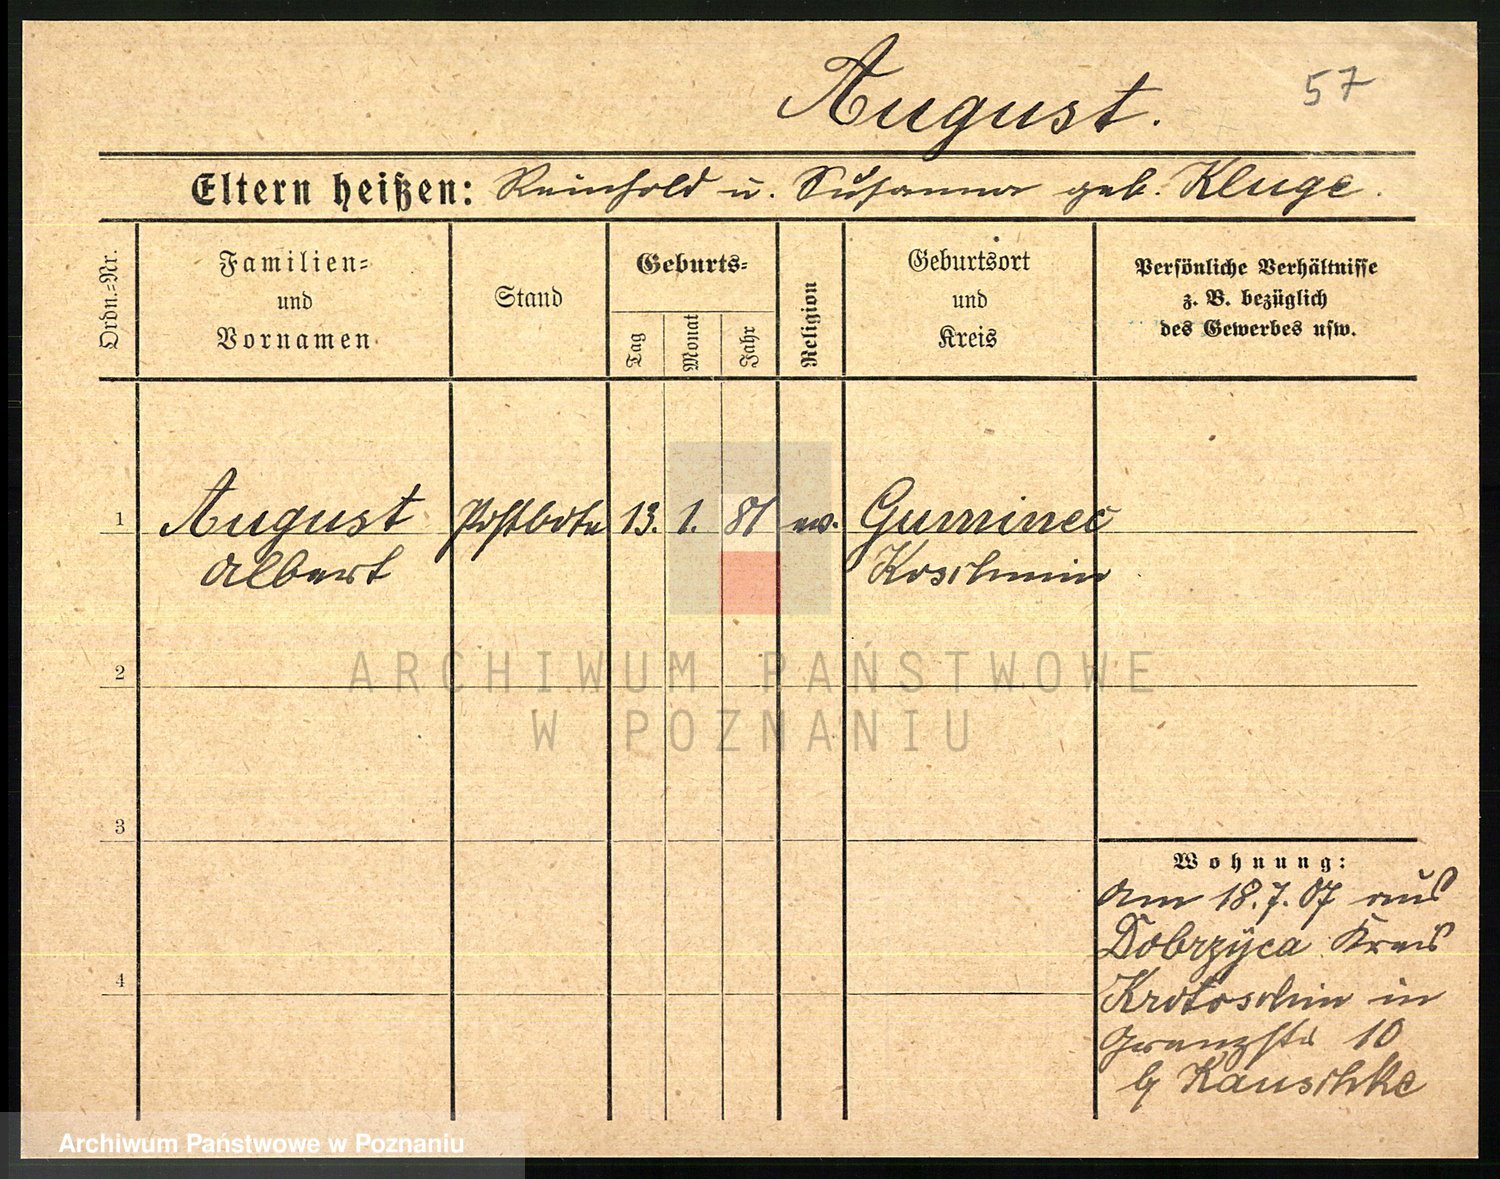 August.
57
Eltern heißen: Reinhold u. Susanna geb. Kluge.
Ordn.=Nr.
Familien=
und
Vornamen
Stand
Geburts=
Tag
Monat
Jahr
Religion
Geburtsort
und
Kreis
Persönliche Verhältnisse
z. B. bezüglich
des Gewerbes usw.
1 August Postbote 13. 1. 81 ev. Guminec
Albert Koschmin
ARCHIWUM PAŃSTWOWE
W POZNANIU
2
3
4
Wohnung:
Am 18.7.07 aus
Dobrzyca Kreis
Krotoschin in
Grenzstr 10
b/ Kauschke
Archiwum Państwowe w Poznaniu